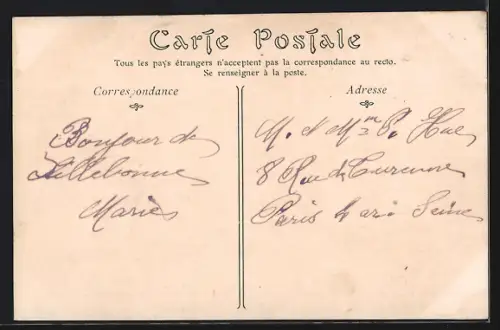 Carte Postale
Tous les pays étrangers n'acceptent pas la correspondance au recto.
Se renseigner à la poste.
Correspondance
Bonjour de
Lillebonne
Marie
Adresse
M. et Mme P. Hue
8 Rue de Turenne
Paris 4 ar. Seine